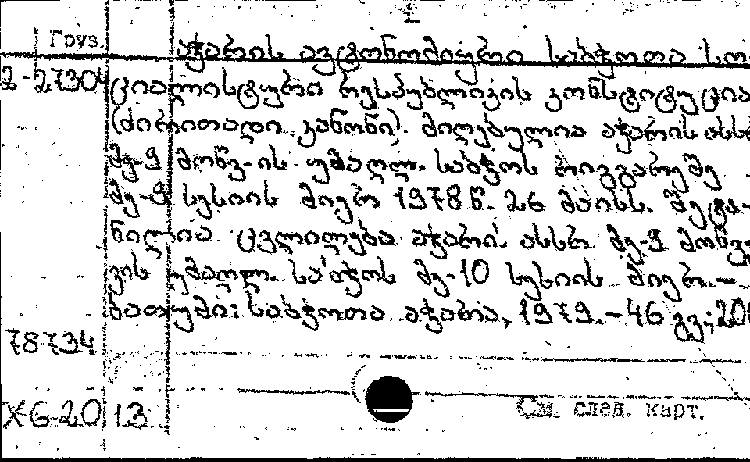 1
Груз.
აჭარის ავტონომიური საბჭოთა სო-
2-27304 ციალისტური რესპუბლიკის კონსტიტუცია
(ძირითადი კანონი). მიღებულია აჭარის ასსრ
მე-9 მოწვ-ის უმაღლ. საბჭოს რიგგარეშე
მე-9 სესიის მიერ 1978 წ. 26 მაისს. შეტა-
ნილია ცვლილება აჭარის ასსრ მე-9 მოწვე-
ვის უმაღლ. საბჭოს მე-10 სესიის მიერ.-
ბათუმი: საბჭოთა აჭარა, 1979.-46 გვ;
78734
X6-20 13
См. след. карт.